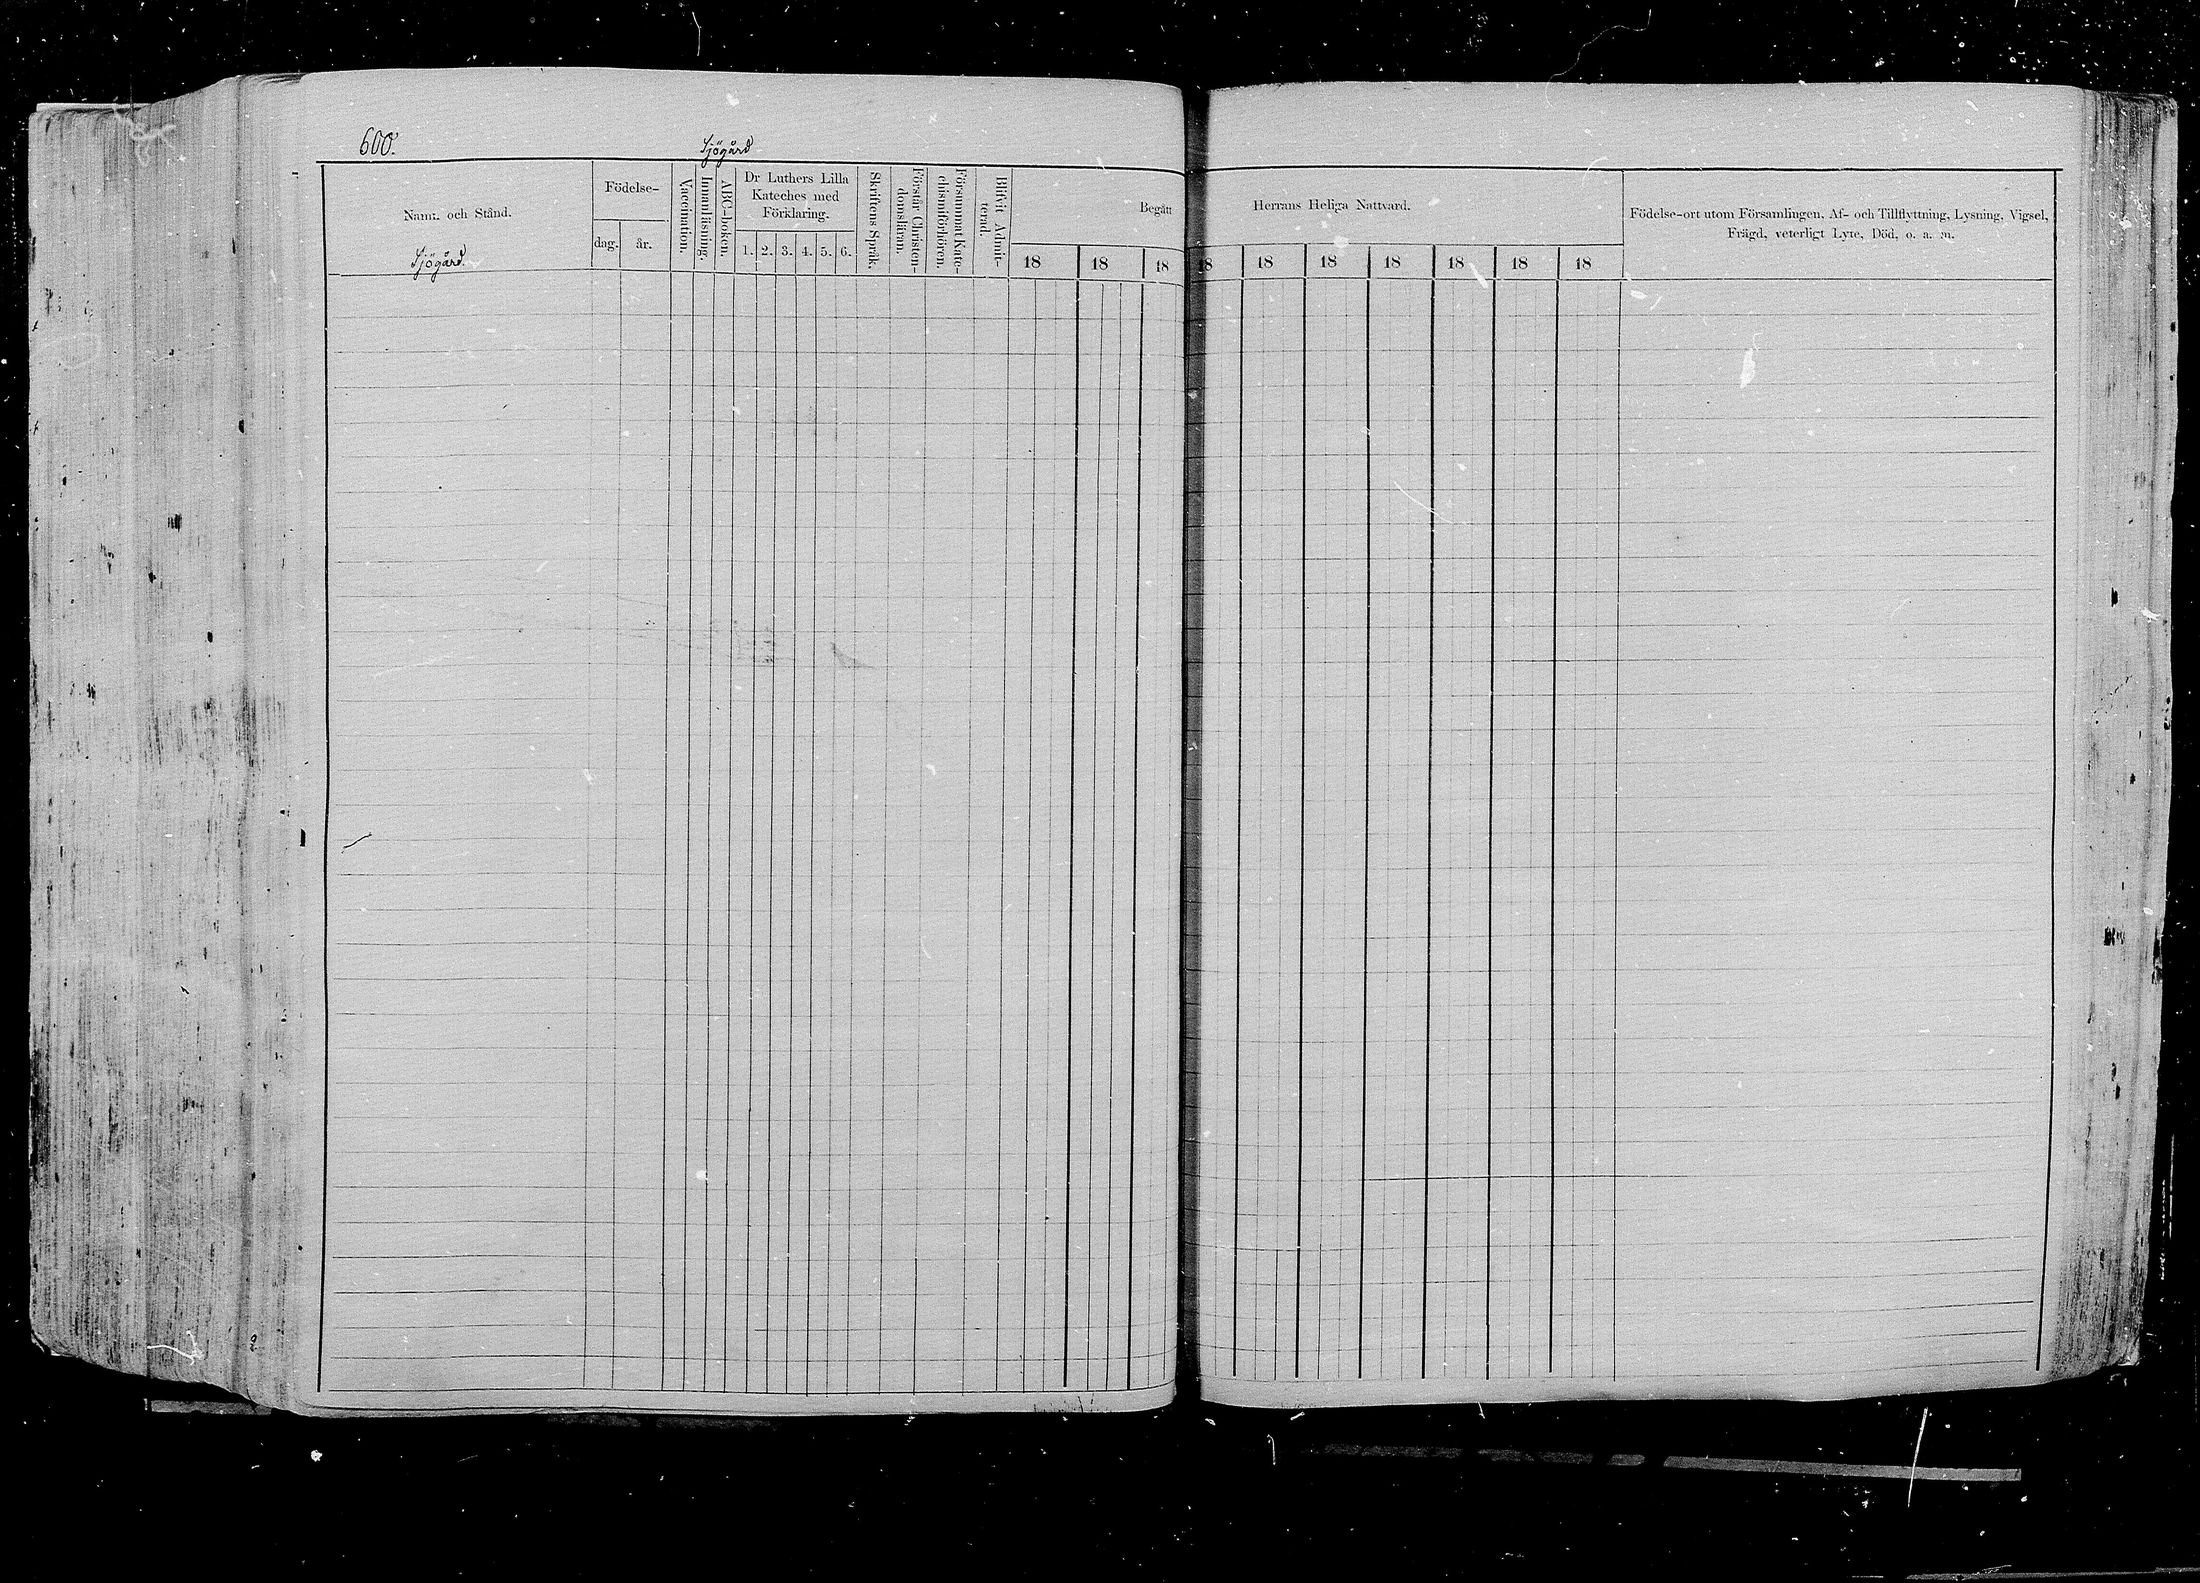 600. Sjögård
Namn och Stånd.
Sjögård.
Födelse-
dag. år.
Vaccination.
Innanläsning.
ABC-boken.
Dr Luthers Lilla
Kateches med
Förklaring.
1. 2. 3. 4. 5. 6.
Skriftens Språk.
Förstår Christen-
domsläran.
Försummat Kate-
chismiförhören.
Blifvit Admit-
terad.
Begått Herrans Heliga Nattvard.
18 18 18 18 18 18 18 18 18 18
Födelse-ort utom Församlingen, Af- och Tillflyttning, Lysning, Vigsel,
Frägd, veterligt Lyte, Död, o. a. m.